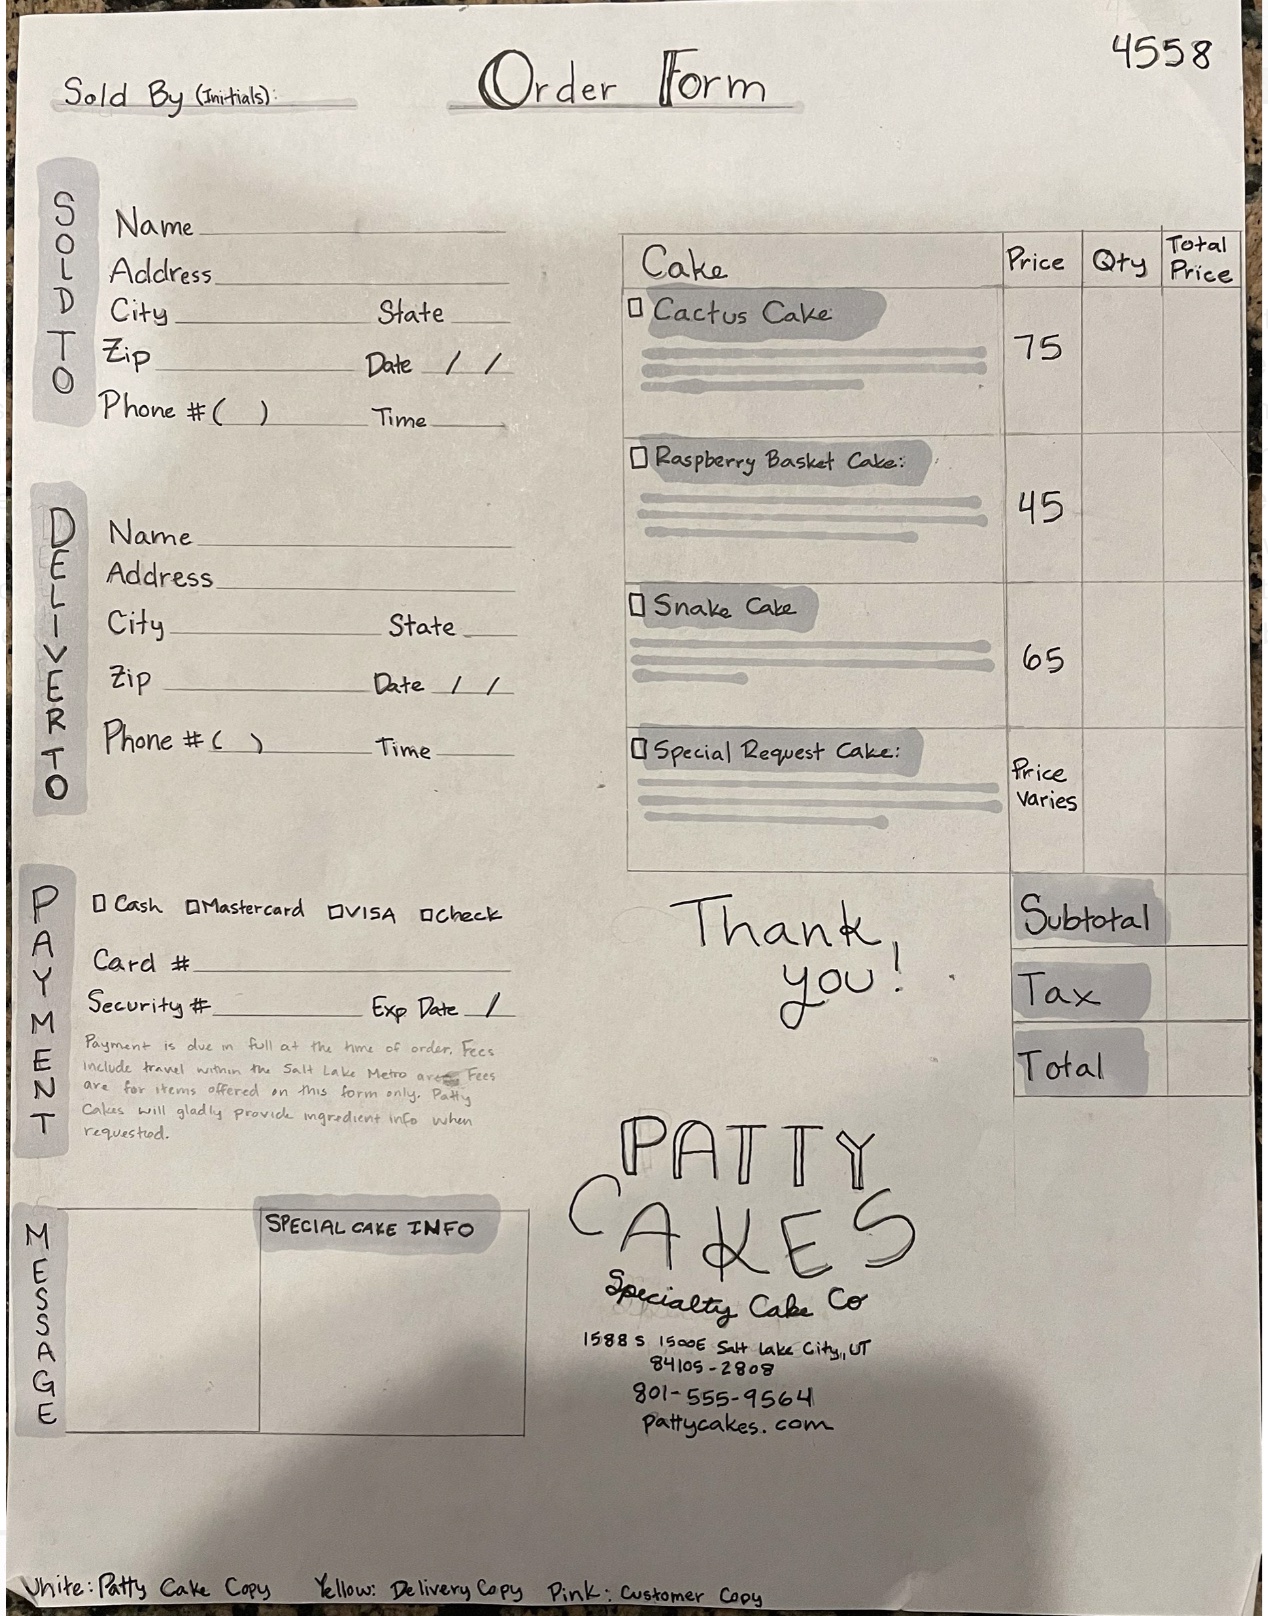 4558
Order Form
Sold By (Initials):
SOLD TO
Name
Address
City State
Zip Date / /
Phone # ( ) Time
DELIVER TO
Name
Address
City State
Zip Date / /
Phone # ( ) Time
PAYMENT
Cash Mastercard VISA Check
Card #
Security # Exp Date /
Payment is due in full at the time of order. Fees
include travel within the Salt Lake Metro area. Fees
are for items offered on this form only. Patty
Cakes will gladly provide ingredient info when
requested.
MESSAGE
SPECIAL CAKE INFO
Cake Price Qty Total Price
Cactus Cake 75
Raspberry Basket Cake: 45
Snake Cake 65
Special Request Cake: Price Varies
Subtotal
Tax
Total
Thank
you!
PATTY
CAKES
Specialty Cake Co
1588 S 1500E Salt Lake City,, UT
84105-2808
801-555-9564
pattycakes.com
White: Patty Cake Copy Yellow: Delivery Copy Pink: Customer Copy